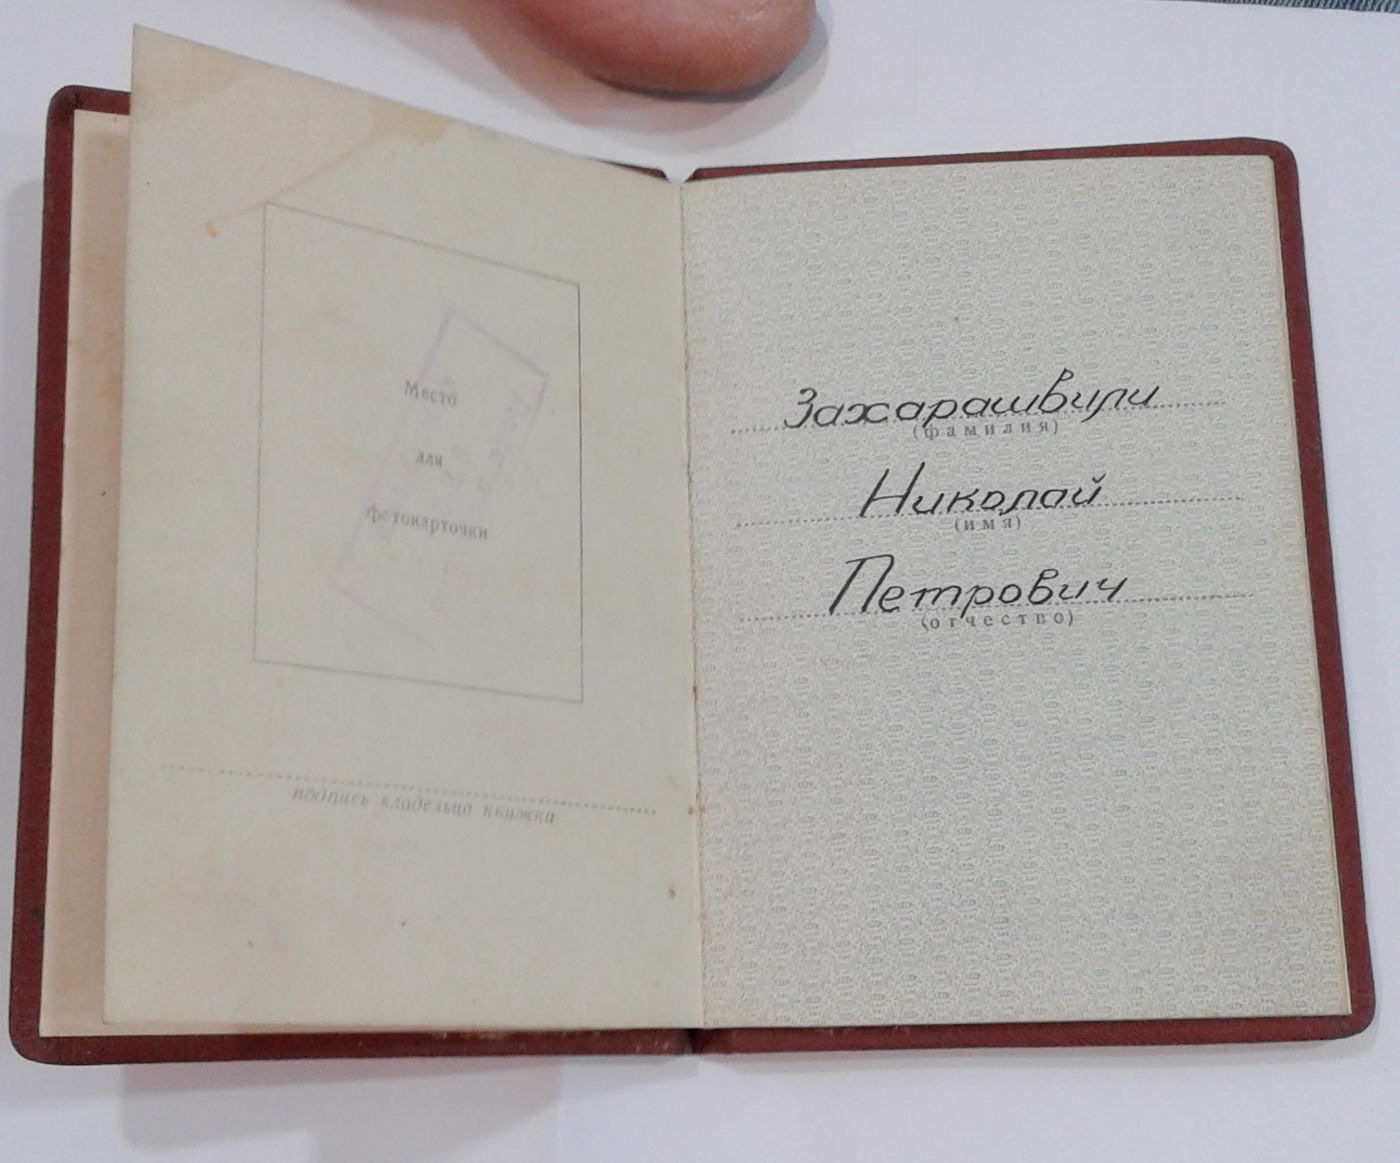 Место
для
фотокарточки
подпись владельца книжки
Захарашвили
(фамилия)
Николай
(имя)
Петрович
(отчество)